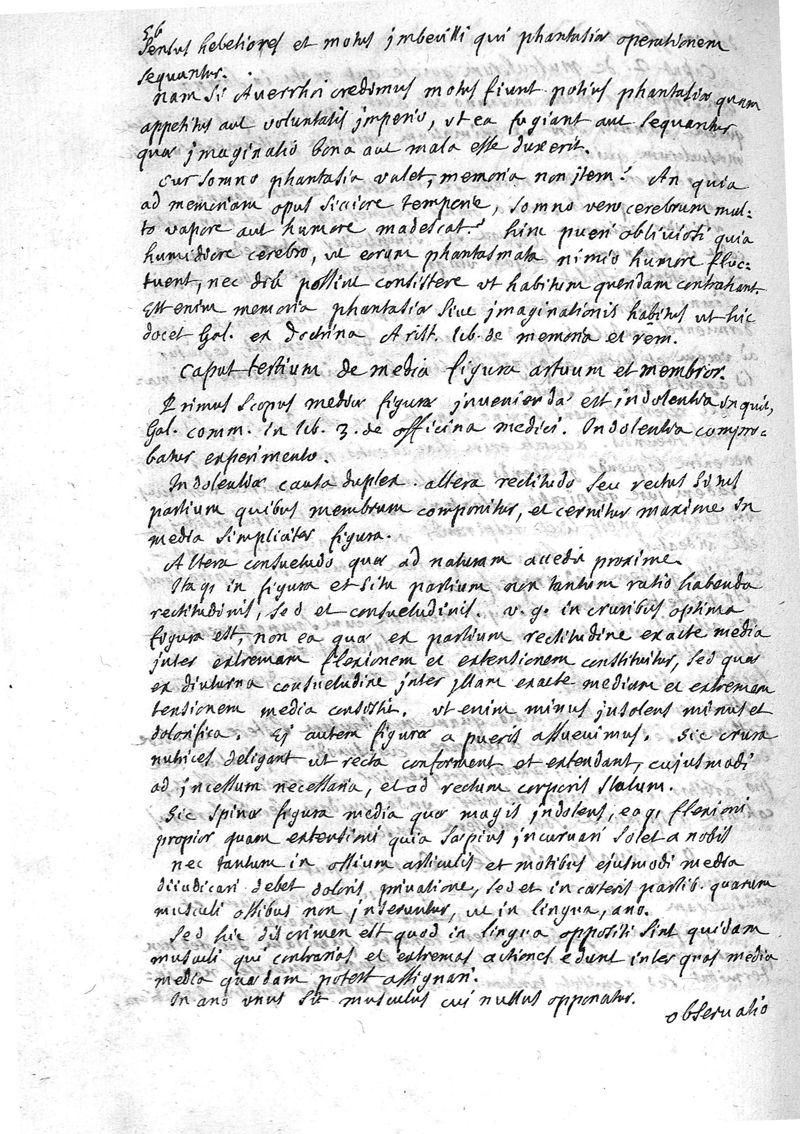 56
sensus hebetiores et motus imbecilli qui phantasiæ operationem
sequantur.
Nam si Averrhoi credimus motus fiunt potius phantasiæ quam
appetitus aut voluntatis imperio, ut ea fugiant aut sequantur
quæ jmaginatio bona aut mala esse duxerit.
Cur somno phantasia valet, memoria non jtem? An quia
ad memoriam opus sicciore tempore, somno vero cerebrum mul-
to vapore aut humore madescat? hinc pueri obliviosi quia
humidiore cerebro, ut eorum phantasmata nimio humore fluc-
tuent, nec diu possint consistere ut habitum quendam contrahant.
Est enim memoria phantasiæ sive jmaginationis habitus ut hic
docet Gal. ex doctrina Arist. lib. de memoria et rem.
Caput tertium de media figura artuum et membror.
Primus scopus mediæ figuræ jnveniendæ est indolentia inquit,
Gal. comm. in lib. 3. de officina medici. Indolentia compro-
batur experimento.
Indolentiæ causa duplex. altera rectitudo seu rectus situs
partium quibus membrum componitur, et cernitur maxime in
media simpliciter figura.
Altera consuetudo quæ ad naturam accedit proxime.
Itaq; in figura et situ partium non tantum ratio habenda
rectitudinis, sed et consuetudinis. v. g. in cruribus optima
figura est, non ea quæ ex partium rectitudine exacte media
inter extremam flexionem et extensionem constituitur, sed quæ
ex diuturna consuetudine jnter jllam exacte mediam et extremam
tensionem media consistit. ut enim minus jnsolens minus et
dolorifica. Ej autem figuræ a pueris assuevimus. Sic crura
nutrices deligant ut recta conforment et extendant, cujusmodi
ad jncessum necessaria, et ad rectum corporis statum.
Sic spinæ figura media quæ magis indolens, eaq; flexioni
propior quam extensioni quia sæpius incurvari solet a nobis
nec tantum in ossium articulis et motibus ejusmodi media
dijudicari debet doloris privatione, sed et in cæteris partib. quarum
musculi ossibus non jnseruntur, ut in lingua, ano.
Sed hic discrimen est quod in lingua oppositi sint quidam
musculi qui contrarias et extremas actiones edunt inter quas media
media quædam potest assignari.
In ano unus sit musculus cui nullus opponatur.
observatio